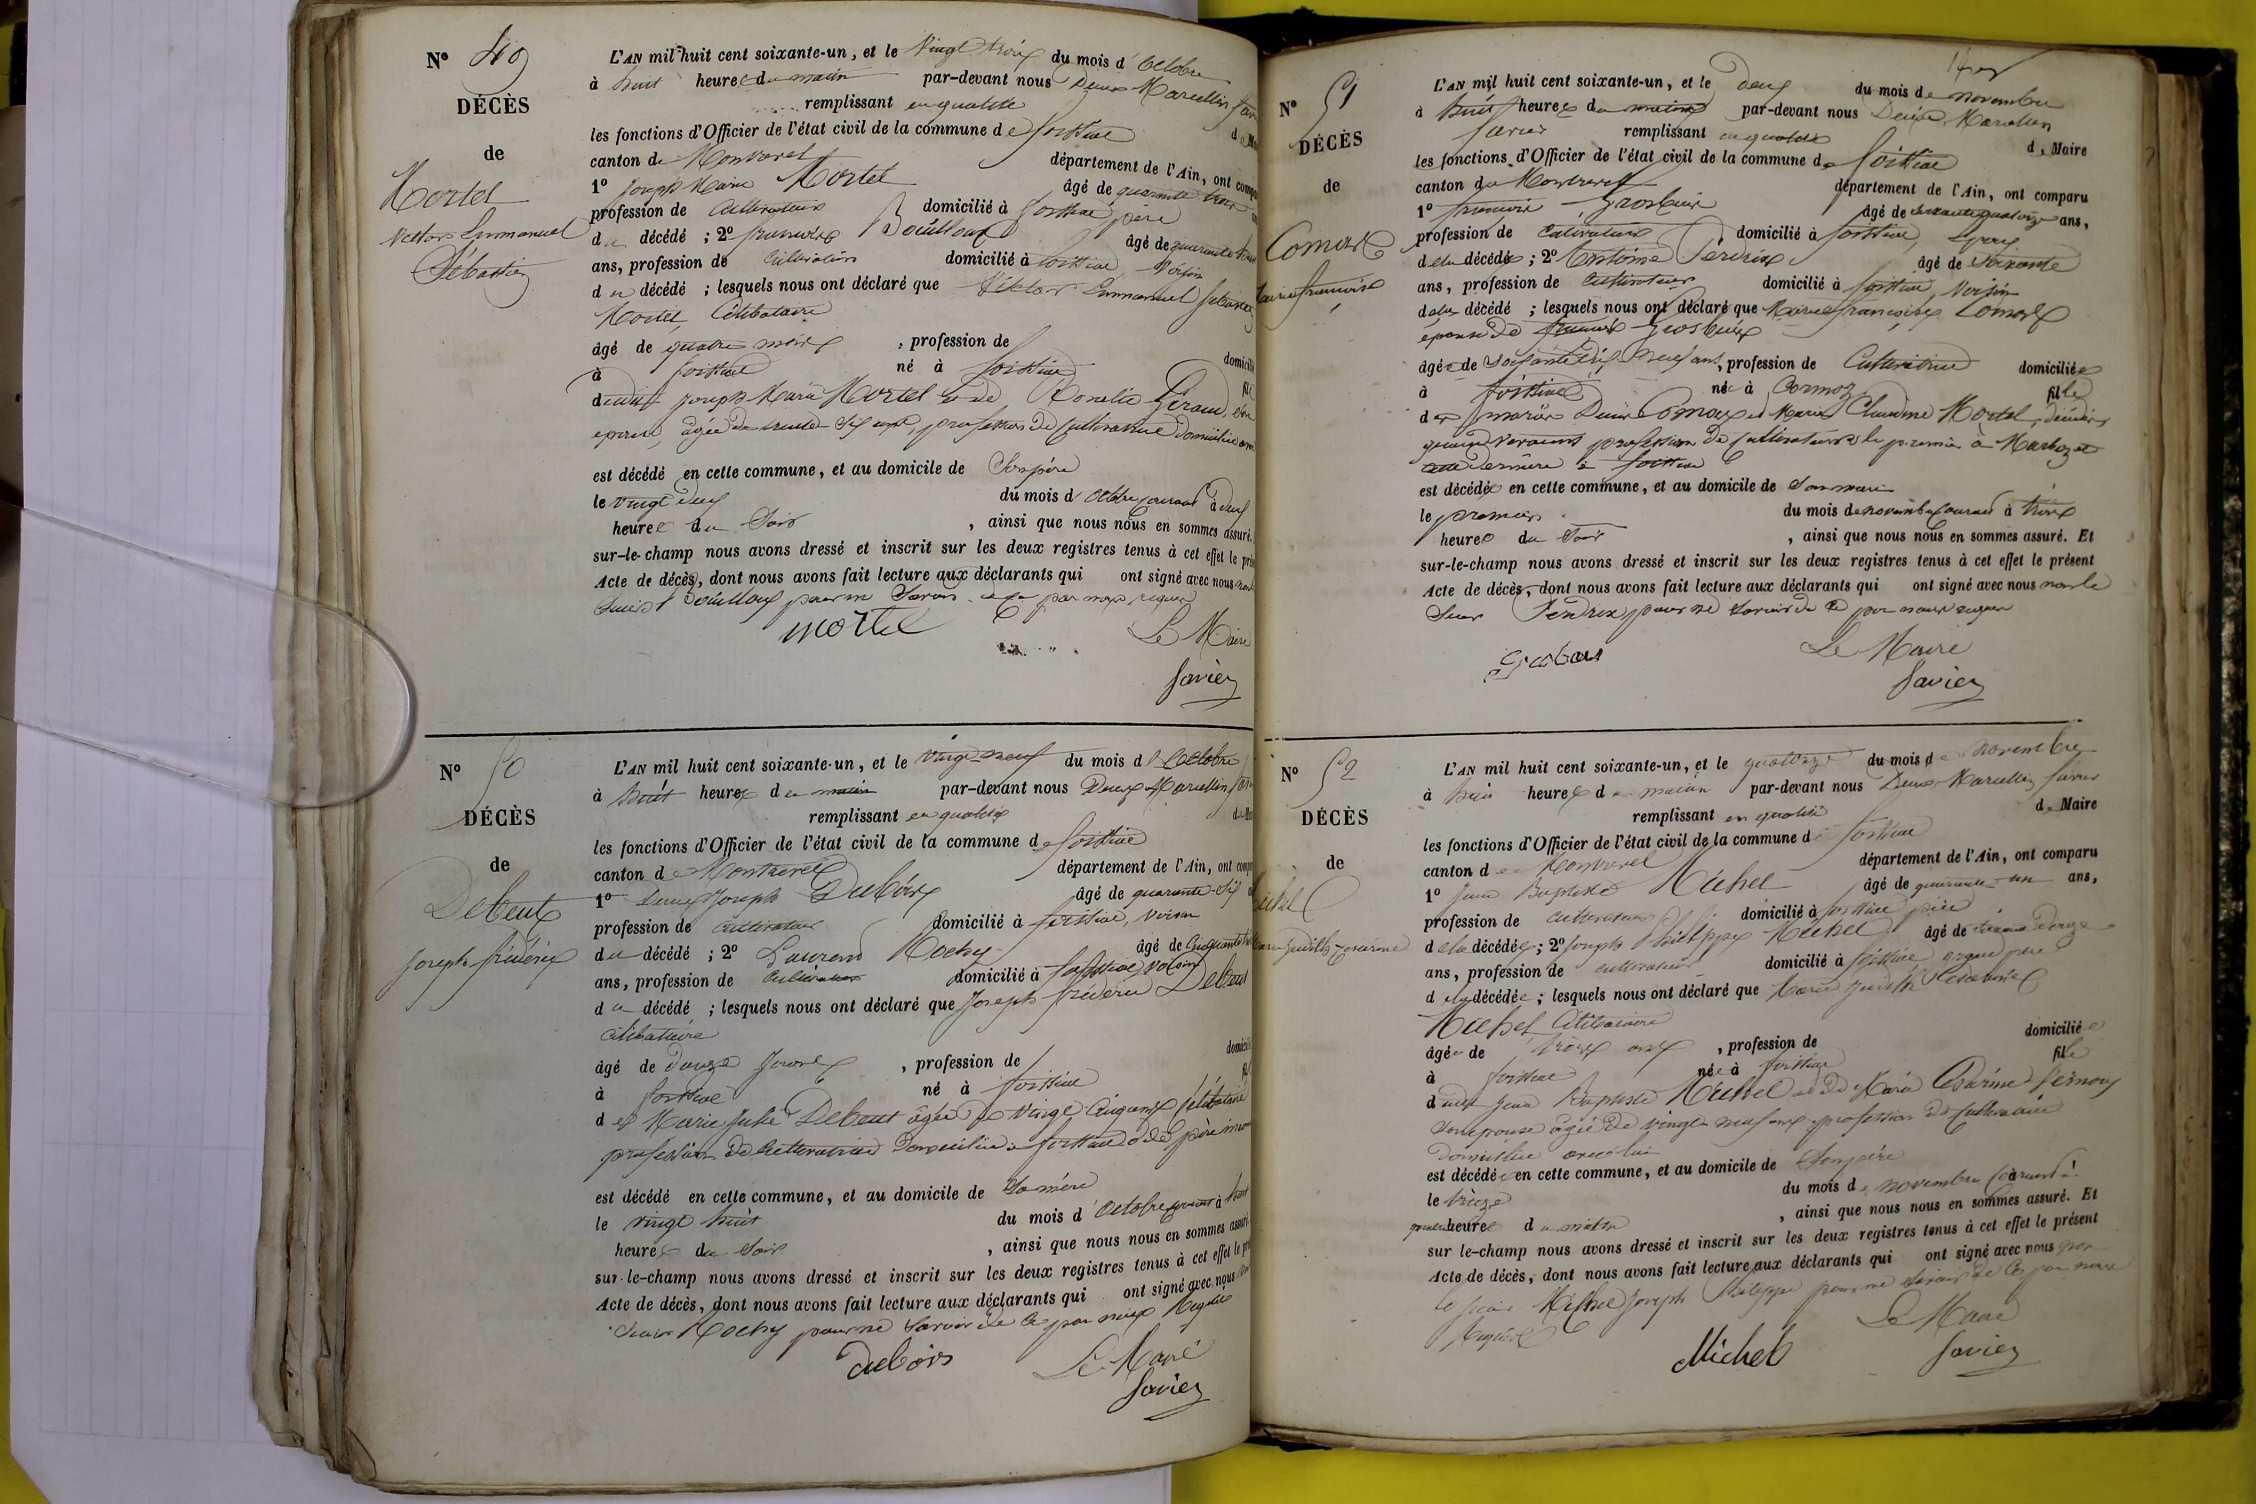 N° 49
DÉCÈS
de
Mortel
Victor Emmanuel
Sébastien
L'AN mil huit cent soixante-un, et le vingt trois du mois d'octobre
à huit heures du matin par-devant nous Denis Marcellin
remplissant en qualité
les fonctions d'Officier de l'état civil de la commune de foissiat
canton de Montrevel département de l'Ain, ont
1° Joseph Marie Mortel âgé de quarante
profession de cultivateur domicilié à foissiat, père
du décédé ; 2° françois Bouilloux âgé de quarante
ans, profession de cultivateur domicilié à foissiat, voisin
du décédé ; lesquels nous ont déclaré que Victor Emmanuel Sébastien
Mortel, Célibataire
âgé de quatre mois , profession de
à foissiat né à foissiat
dudit Joseph Marie Mortel et de Giraud, son
épouse, âgée de trente six ans, profession de Cultivatrice domiciliée
est décédé en cette commune, et au domicile de Son père
le vingt deux du mois d'octobre courant à
heures du soir , ainsi que nous nous en sommes assuré.
sur-le-champ nous avons dressé et inscrit sur les deux registres tenus à cet effet le
Acte de décès, dont nous avons fait lecture aux déclarants qui ont signé avec nous non le
Sieur Bouilloux pour ne Savoir de ce par nous requis
mortel Le Maire
favier
N° 50
DÉCÈS
de
Debeut
Joseph frédéric
L'AN mil huit cent soixante-un, et le vingt-neuf du mois d'Octobre
à huit heures du matin par-devant nous Denis Marcellin
remplissant en qualité
les fonctions d'Officier de l'état civil de la commune de foissiat
canton de Montrevel département de l'Ain, ont
1° Denis Joseph Dubois âgé de quarante-six
profession de cultivateur domicilié à foissiat, voisin
du décédé ; 2° Laurent Rochy âgé de cinquante
ans, profession de cultivateur domicilié à foissiat, voisin
du décédé ; lesquels nous ont déclaré que Joseph frédéric Debeut
célibataire
âgé de douze jours , profession de
à foissiat né à foissiat
de Marie Julie Debeut âgée de vingt cinq ans célibataire
profession de cultivatrice domiciliée à foissiat et de père
est décédé en cette commune, et au domicile de Sa mère
le vingt huit du mois d'octobre courant à huit
heures du soir , ainsi que nous nous en sommes
sur-le-champ nous avons dressé et inscrit sur les deux registres tenus à cet effet le
Acte de décès, dont nous avons fait lecture aux déclarants qui ont signé avec nous
Sieur Rochy pour ne savoir de ce par nous Requis
dubois Le Maire
favier
N° 51
DÉCÈS
de
Comas
L'AN mil huit cent soixante-un, et le deux du mois de novembre
à huit heures du matin par-devant nous Denis Marcellin
favier remplissant en qualité de Maire
les fonctions d'Officier de l'état civil de la commune de foissiat
canton de Montrevel département de l'Ain, ont comparu
1° françois Grosbuis âgé de soixante quatorze ans,
profession de cultivateur domicilié à foissiat, époux
de la décédée ; 2° Antoine Perdrix âgé de soixante
ans, profession de cultivateur domicilié à foissiat, voisin
de la décédé ; lesquels nous ont déclaré que Marie françoise Comas
épouse de françois Grosbuis
âgée de soixante dix neuf ans, profession de Cultivatrice domiciliée
à foissiat née à Cormoz fille
de mariés Denis Comas et Marie Claudine Mortel, décédés
profession de cultivateurs le premier à Marboz et
la dernière à foissiat
est décédée en cette commune, et au domicile de son mari
le premier du mois de novembre courant à trois
heures du soir , ainsi que nous nous en sommes assuré. Et
sur-le-champ nous avons dressé et inscrit sur les deux registres tenus à cet effet le présent
Acte de décès, dont nous avons fait lecture aux déclarants qui ont signé avec nous non le
Sieur Perdrix pour ne savoir de ce par nous requis
Le Maire
favier
N° 52
DÉCÈS
de
L'AN mil huit cent soixante-un, et le quatorze du mois de novembre
à huit heures du matin par-devant nous Denis Marcellin favier
remplissant en qualité de Maire
les fonctions d'Officier de l'état civil de la commune de foissiat
canton de Montrevel département de l'Ain, ont comparu
1° Jean Baptiste Michel âgé de quarante-un ans,
profession de cultivateur domicilié à foissiat père
de la décédée ; 2° Joseph Philippe Michel âgé de
ans, profession de cultivateur domicilié à foissiat
de la décédée ; lesquels nous ont déclaré que Marie Judith
Michel Célibataire
âgée de trois ans , profession de domiciliée
à foissiat née à foissiat fille
dudit Jean Baptiste Michel et de Marie Césarine
son épouse âgée de vingt neuf ans, profession de Cultivatrice
domiciliée avec lui
est décédée en cette commune, et au domicile de Son père
le treize du mois de novembre courant à
heures du matin , ainsi que nous nous en sommes assuré. Et
sur le-champ nous avons dressé et inscrit sur les deux registres tenus à cet effet le présent
Acte de décès, dont nous avons fait lecture aux déclarants qui ont signé avec nous non
le sieur Michel Joseph Philippe pour ne savoir de ce par nous
Requis Le Maire
Michel favier